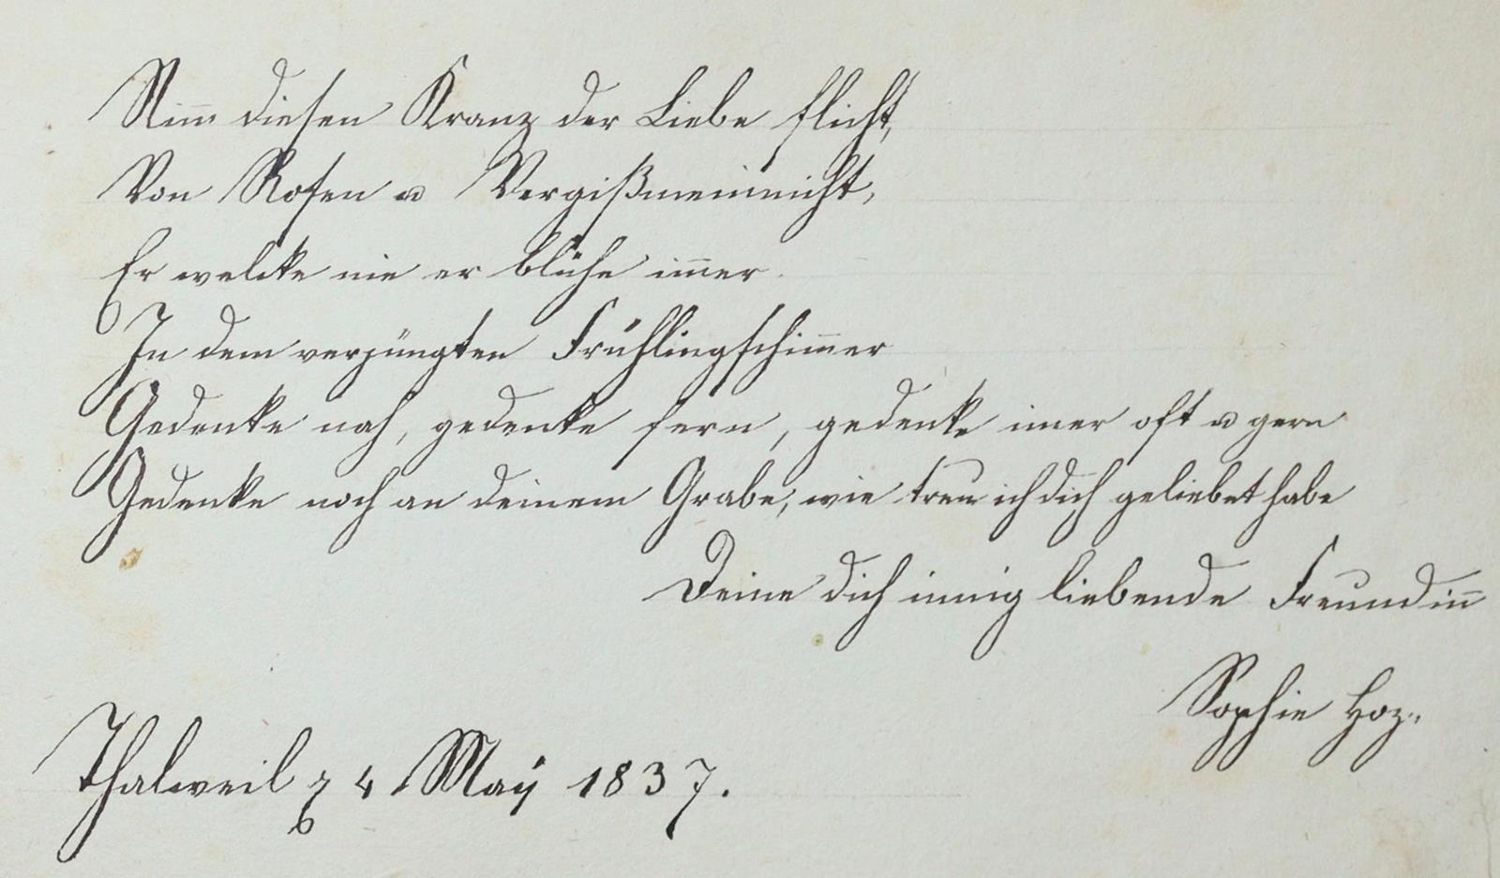 Nim̄ diesen Kranz der Liebe flicht,
Von Rosen u Vergißmeinnicht,
Er welcke nie er blühe im̄er
In dem verjüngten Frühlingschim̄er
Gedenke nah, gedenke fern, gedenke im̄er oft u gern
Gedenke noch an deinem Grabe, wie treu ich dich geliebet habe
Deine dich innig liebende Freundin̄
Sophie Hoz.
Thalweil 4 Maÿ 1837.